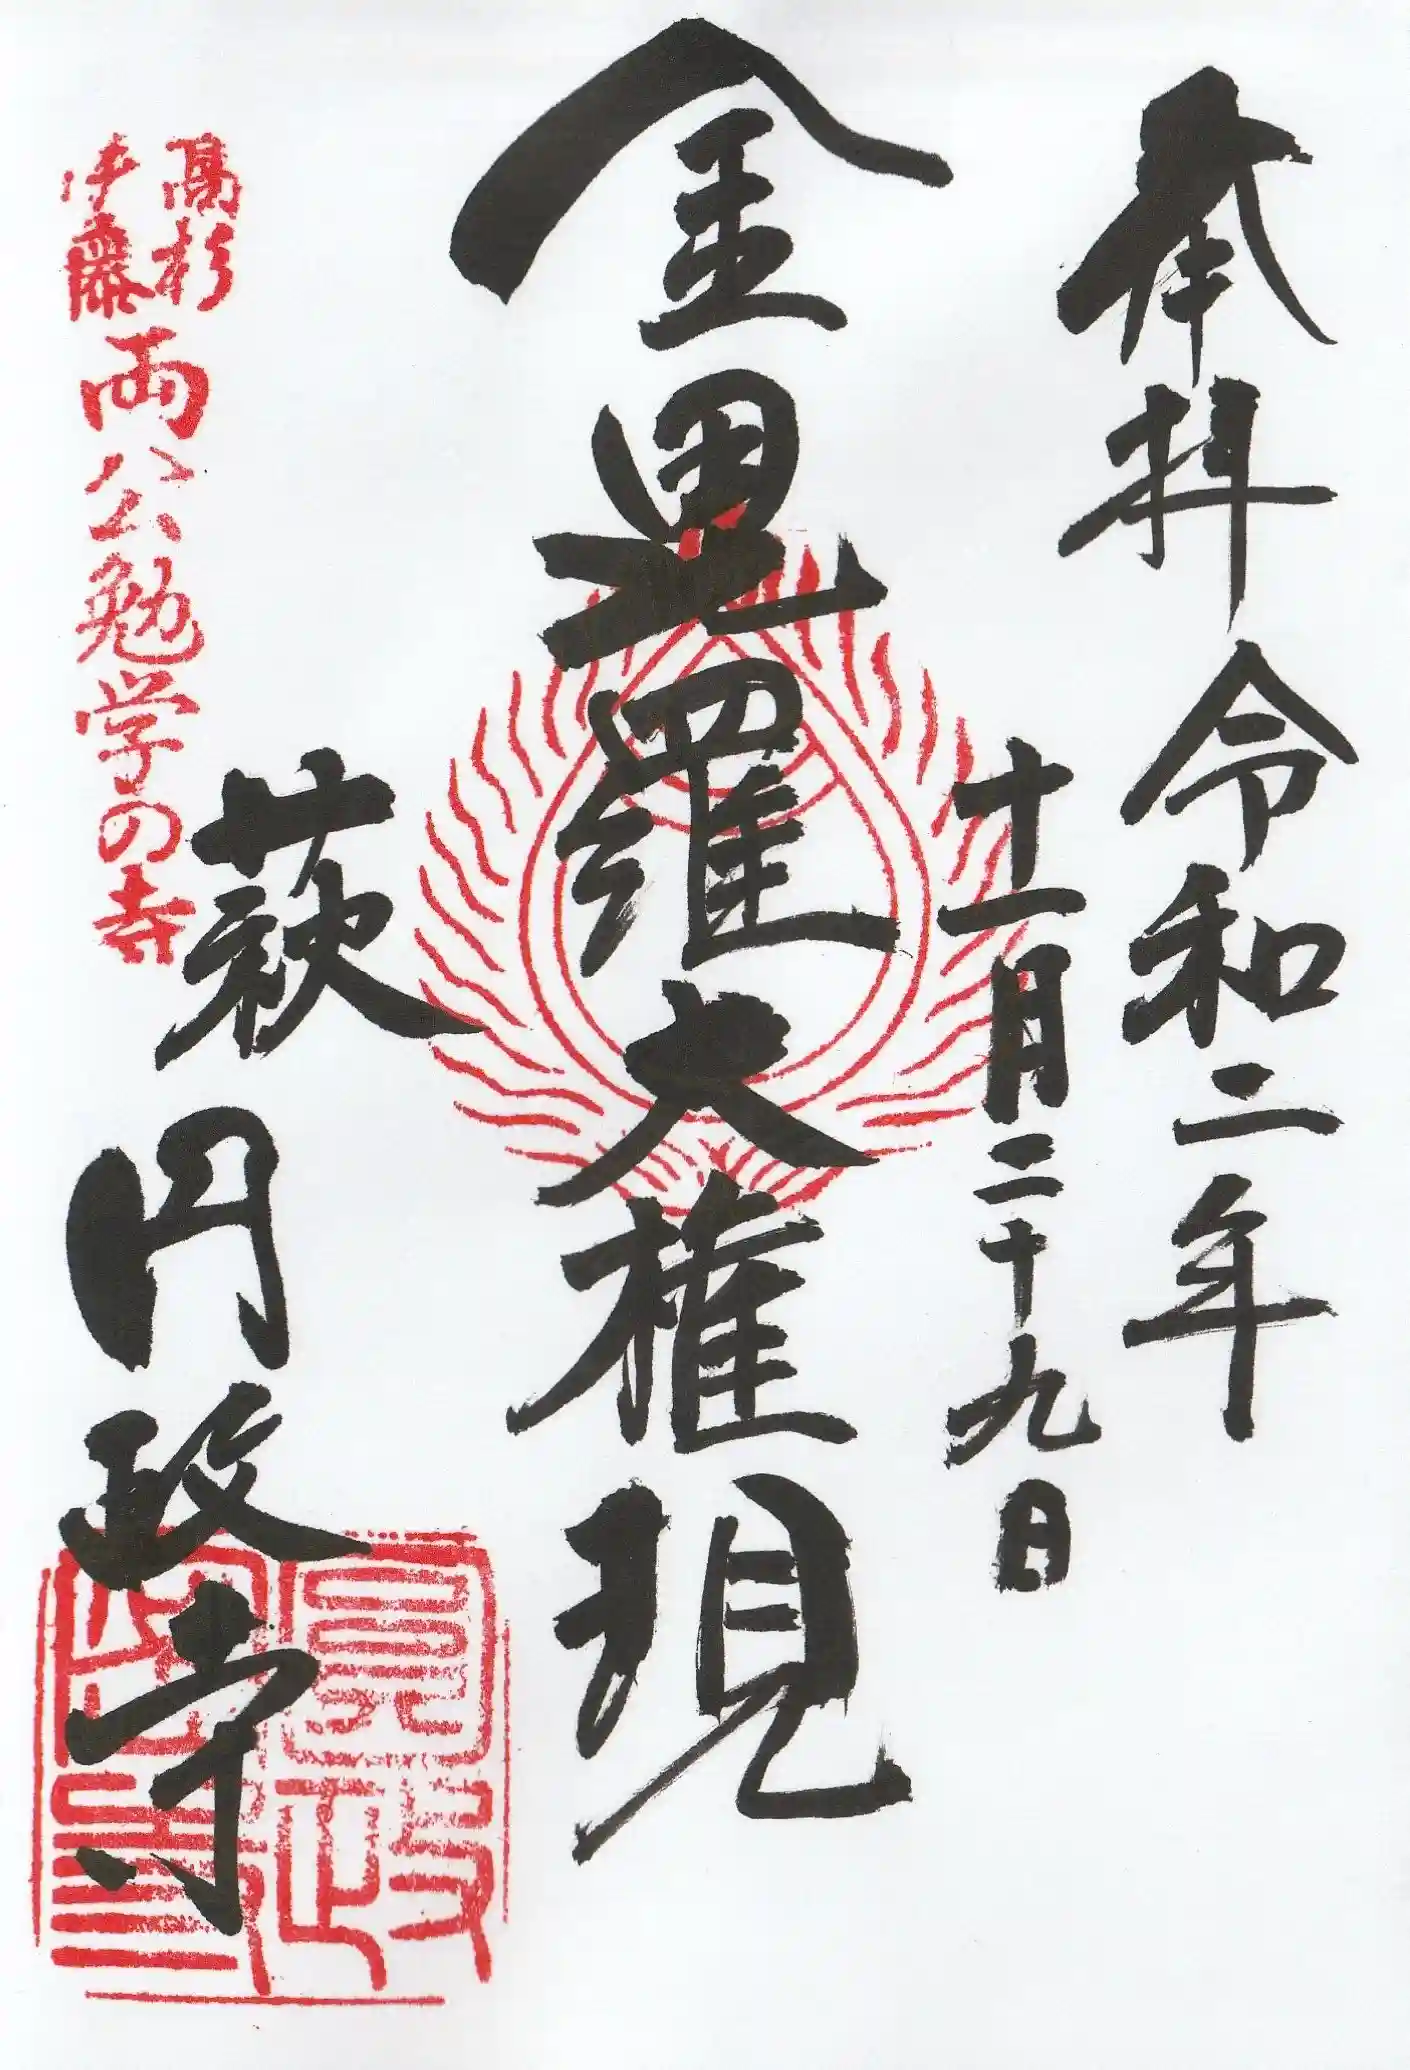 奉拝
令和二年
十一月二十九日
金毘羅大権現
萩
円政寺
高杉
伊藤
両公勉学の寺